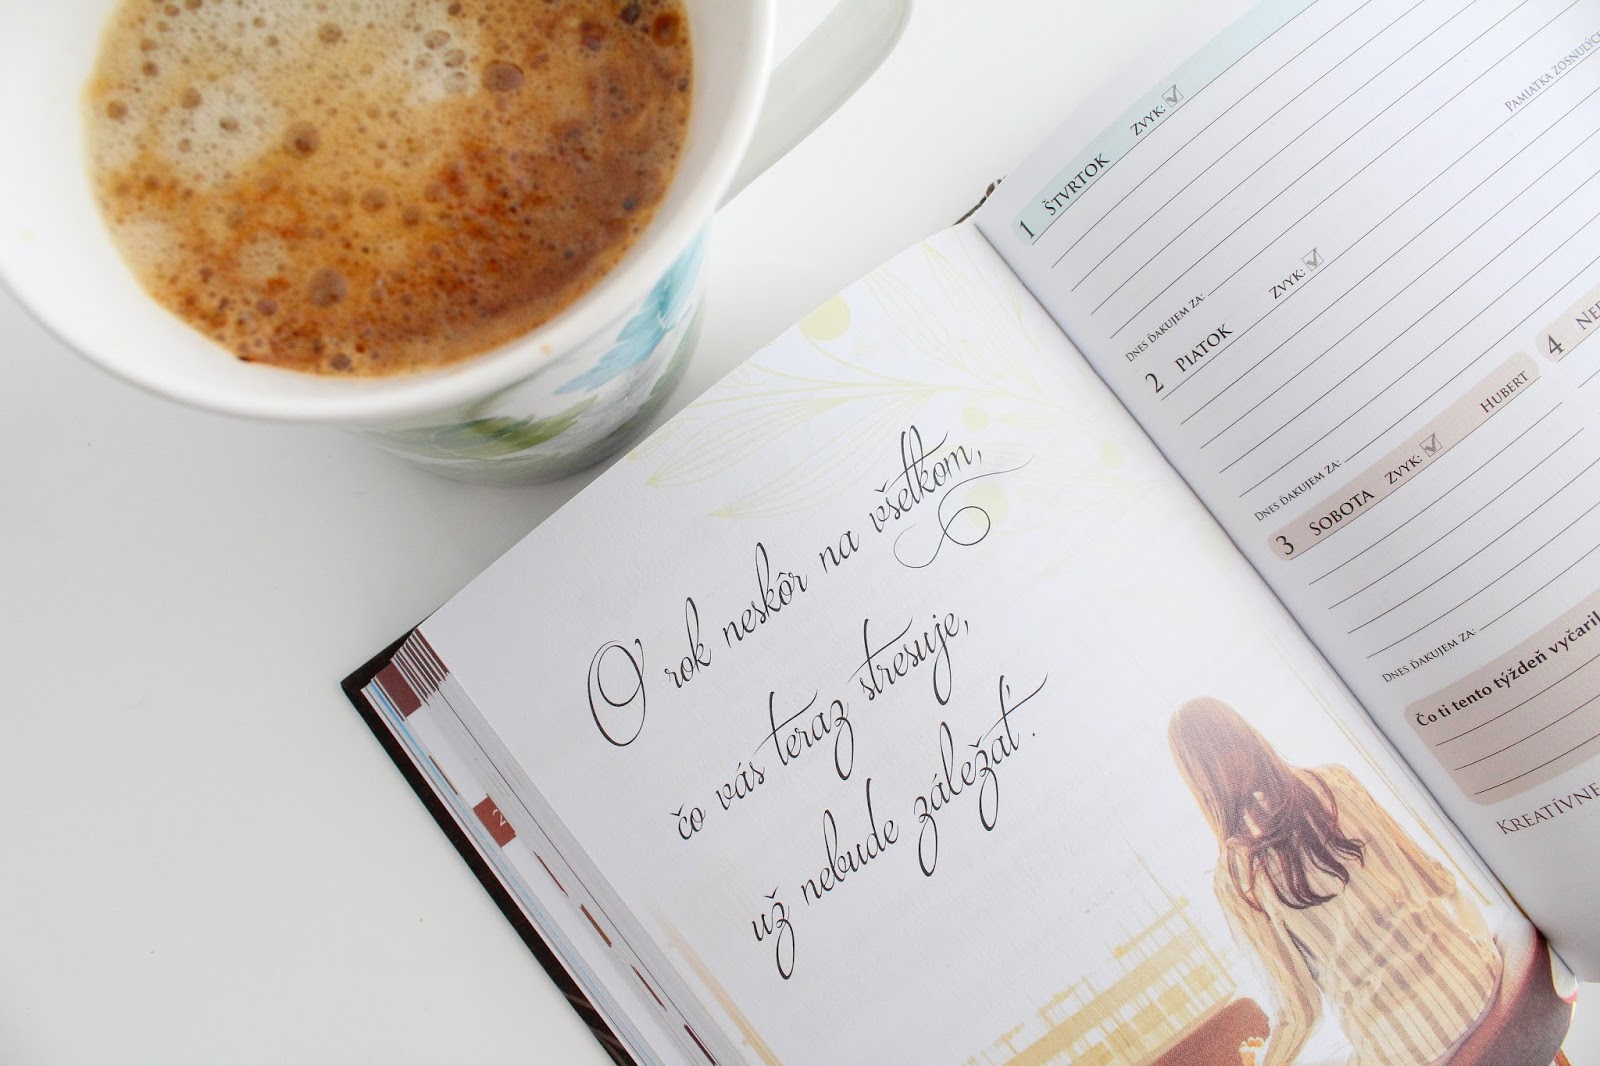 O rok neskôr na všetkom,
čo vás teraz stresuje,
už nebude záležať.
2
1 ŠTVRTOK ZVYK:
PAMIATKA ZOSNULÝCH
DNES ĎAKUJEM ZA:
2 PIATOK ZVYK:
DNES ĎAKUJEM ZA:
3 SOBOTA ZVYK: HUBERT
4
DNES ĎAKUJEM ZA:
Čo ti tento týždeň vyčaril
KREATÍVNE